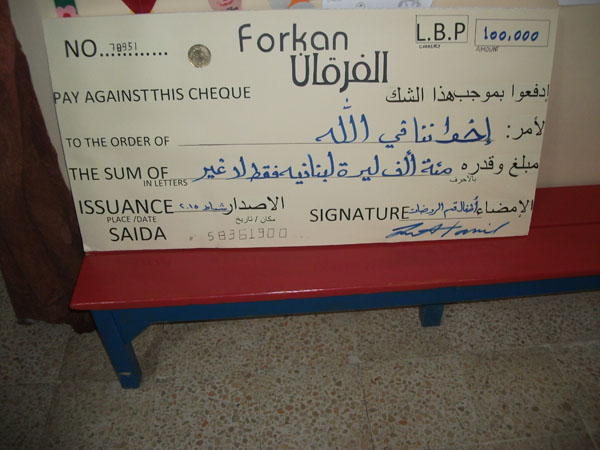 NO...78951......
Forkan
الفرقان
L.B.P
CURRENCY
100,000
AMOUNT
PAY AGAINST THIS CHEQUE
إدفعوا بموجب هذا الشك
TO THE ORDER OF
إخواننا في الله
لأمر:
THE SUM OF
IN LETTERS
مئة ألف ليرة لبنانيه فقط لا غير
مبلغ وقدره
بالاحرف
ISSUANCE
PLACE /DATE
شباط ٢٠١٥
الاصدار
مكان / تاريخ
SIGNATURE
أطفال قسم الروضات
الإمضاء
SAIDA
58361900